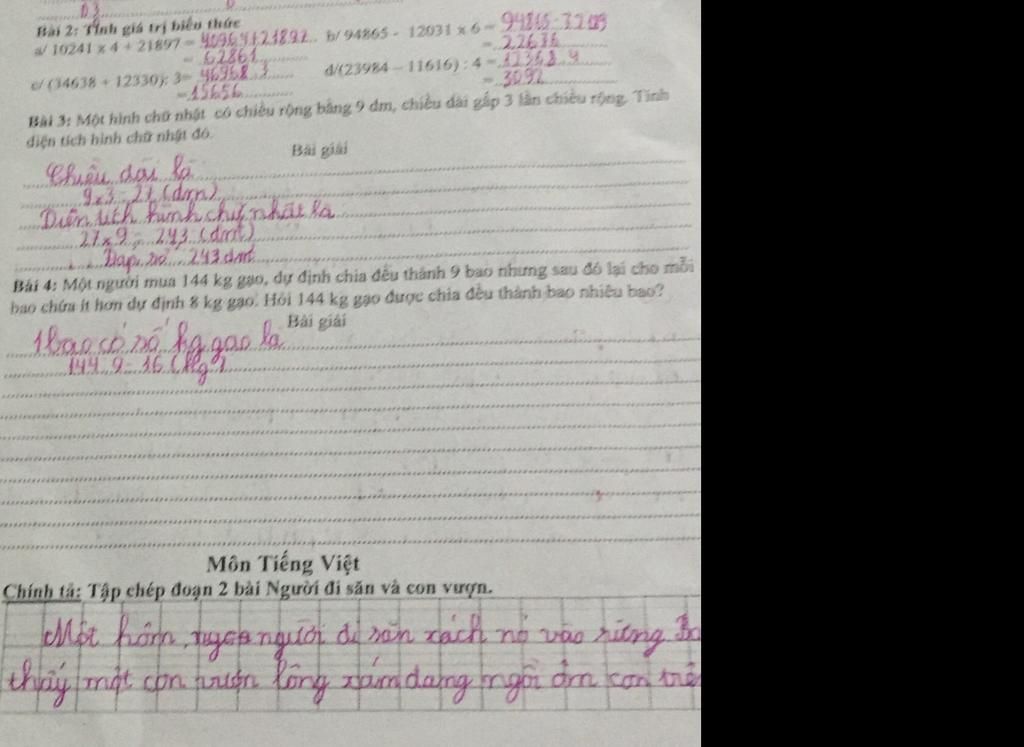 03
Bài 2: Tính giá trị biểu thức
a/ 10241 x 4 + 21897 = 40964+21897 b/ 94865 - 12031 x 6 = 94865-72189
= 62861 = 22636
c/ (34638 + 12330): 3= 46968:3 d/(23984 – 11616) : 4 = 12368 4
=15656 = 3092
Bài 3: Một hình chữ nhật có chiều rộng bằng 9 dm, chiều dài gấp 3 lần chiều rộng. Tính
diện tích hình chữ nhật đó.
Bài giải
Chiều dài là
9x3=27 (dm)
Diện tích hình chữ nhật là
27x9= 243 (dm²)
Đáp số: 243 dm²
Bài 4: Một người mua 144 kg gạo, dự định chia đều thành 9 bao nhưng sau đó lại cho mỗi
bao chứa ít hơn dự định 8 kg gạo. Hỏi 144 kg gạo được chia đều thành bao nhiêu bao?
Bài giải
1 bao có số kg gạo là
144:9= 16 (kg)
Môn Tiếng Việt
Chính tả: Tập chép đoạn 2 bài Người đi săn và con vượn.
Một hôm, người đi săn xách nỏ vào rừng
thấy một con vượn lông xám đang ngồi ôm con trê